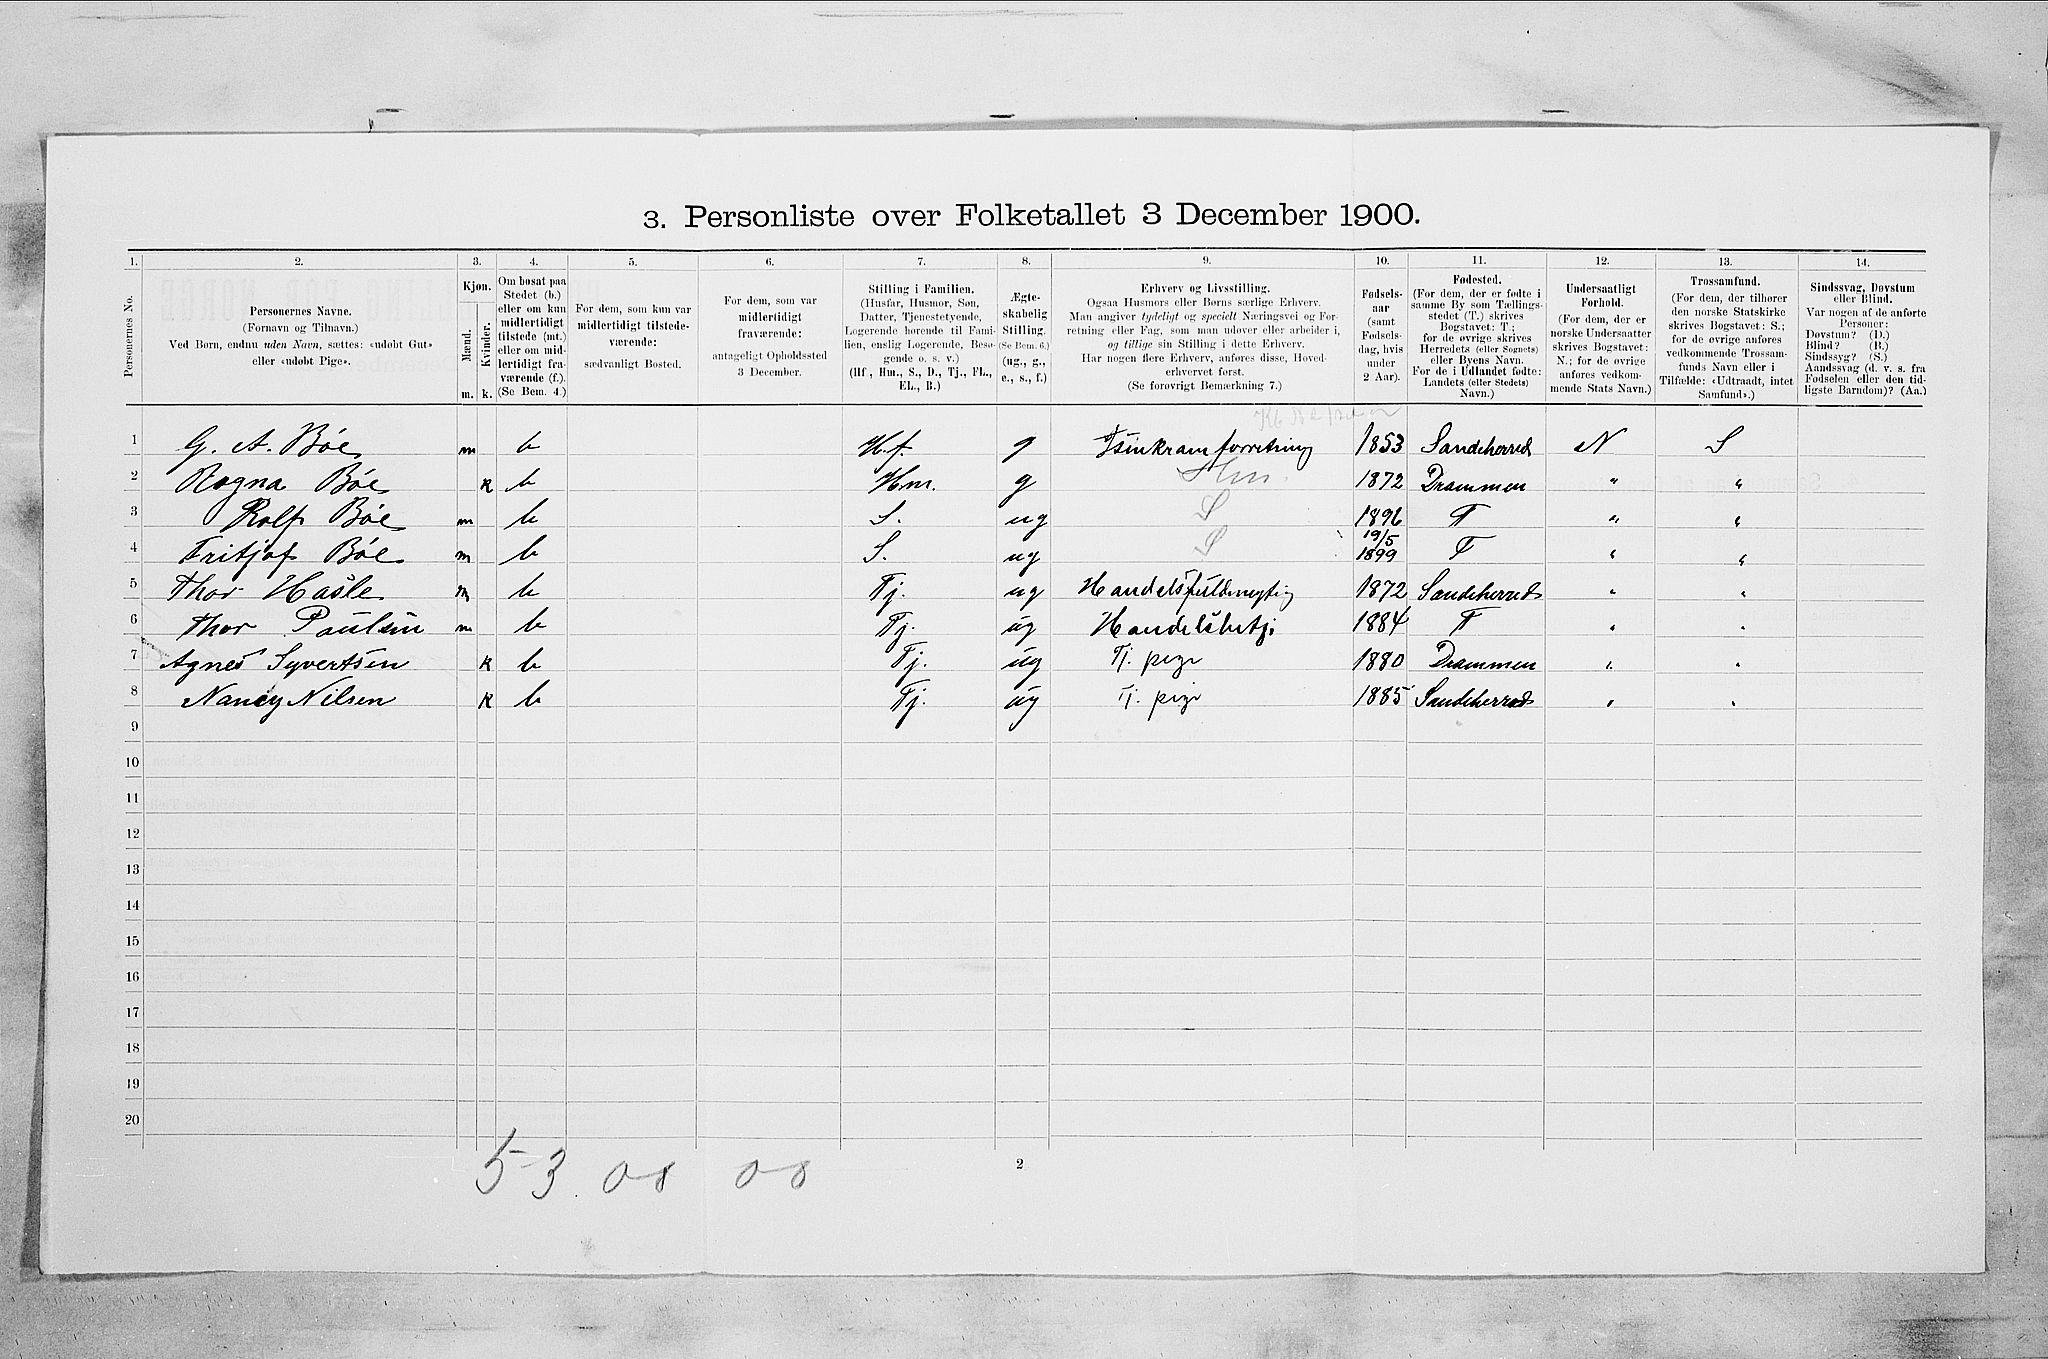 3. Personliste over Folketallet 3 December 1900.
1. 2. 3. 4. 5. 6. 7. 8. 9. 10. 11. 12. 13. 14.
Personernes No.
Personernes Navne.
(Fornavn og Tilnavn.)
Ved Børn, endnu uden Navn, sættes: «udøbt Gut»
eller «udøbt Pige».
Kjøn.
Mænd.
Kvinder.
m. k.
Om bosat paa
Stedet (b.)
eller om kun
midlertidigt
tilstede (mt.)
eller om mid-
lertidigt fra-
værende (f.).
(Se Bem. 4.)
For dem, som kun var
midlertidigt tilstede-
værende:
sædvanligt Bosted.
For dem, som var
midlertidigt
fraværende:
antageligt Opholdssted
3 December.
Stilling i Familien.
(Husfar, Husmor, Søn,
Datter, Tjenestetyende,
Logerende hørende til Fami-
lien, enslig Logerende, Besø-
gende o. s. v.)
(Hf., Hm., S., D., Tj., FL.,
EL., B.)
Ægte-
skabelig
Stilling.
(Se Bem. 6.)
(ug., g.,
e., s., f.)
Erhverv og Livsstilling.
Ogsaa Husmors eller Børns særlige Erhverv.
Man angiver tydeligt og specielt Næringsvei og For-
retning eller Fag, som man udøver eller arbeider i,
og tillige sin Stilling i dette Erhverv.
Har nogen flere Erhverv, anføres disse, Hoved-
erhvervet først.
(Se forøvrigt Bemærkning 7.)
Fødsels-
aar
(samt
Fødsels-
dag, hvis
under
2 Aar).
Fødested.
(For dem, der er fødte i
samme By som Tællings-
stedet (T.) skrives
Bogstavet: T.;
for de øvrige skrives
Herredets (eller Sognets)
eller Byens Navn.
For de i Udlandet fødte:
Landets (eller Stedets)
Navn.)
Undersaatligt
Forhold.
(For dem, der er
norske Undersaatter
skrives Bogstavet:
N.; for de øvrige
anføres vedkom-
mende Stats Navn.)
Trossamfund.
(For dem, der tilhører
den norske Statskirke
skrives Bogstavet: S.;
for de øvrige anføres
vedkommende Trossam-
funds Navn eller i
Tilfælde: «Udtraadt, intet
Samfund».)
Sindssvag, Døvstum
eller Blind.
Var nogen af de anførte
Personer:
Døvstum? (D.)
Blind? (B.)
Sindssyg? (S.)
Aandssvag (d. v. s. fra
Fødselen eller den tid-
ligste Barndom)? (Aa.)
1 G. A. Bøe m b H.f. g Isenkramforretning 1853 Sandeherred N S
2 Ragna Bøe k b H.m. g Hm. 1872 Drammen " "
3 Rolf Bøe m b S. ug S 1896 T " "
4 Fritjof Bøe m b S. ug S 19/5 1899 T " "
5 Thor Hasle m b Tj. ug Handelsfuldmegtig 1872 Sandeherred " "
6 Thor Paulsen m b Tj. ug Handelsbetj. 1884 T " "
7 Agnes Syvertsen k b Tj. ug Tj. pige 1880 Drammen " "
8 Nancy Nilsen k b Tj. ug Tj. pige 1885 Sandeherred " "
9
10
11
12
13
14
15
16
17
18
19
20
53. 08 08
2